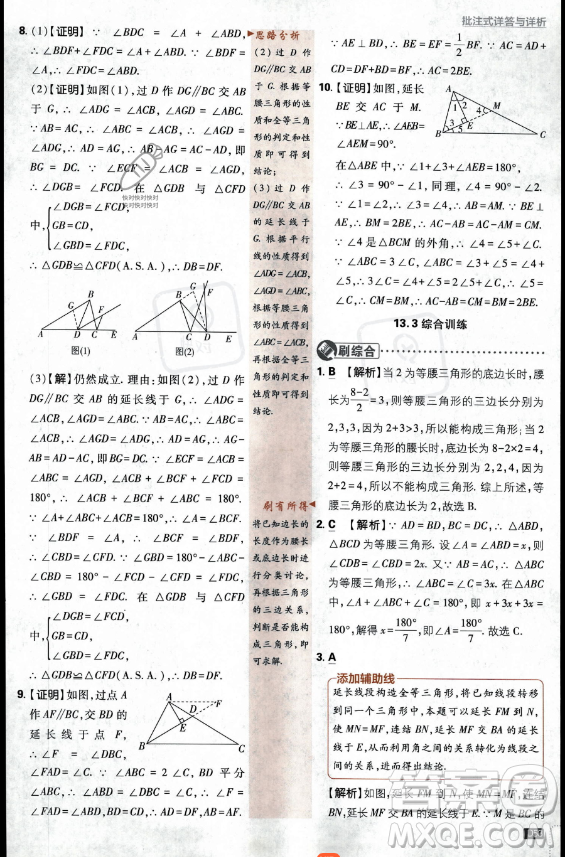 批注式详答与详析
8. (1)【证明】∵ ∠BDC = ∠A + ∠ABD,
∴ ∠BDF+∠FDC=∠A+∠ABD,
∴ ∠BDF=∠ABD.
(2)【证明】如图(1),过 D 作 DG∥BC 交 AB
于 G, ∴ ∠ADG = ∠ACB, ∠AGD = ∠ABC.
∵ AB=AC, ∴ ∠ABC = ∠ACB, ∴ ∠AGD =
∠ADG, ∴ AG=AD, ∴ AB-AG=AC-AD, 即
BG = DC. ∵ ∠ECF = ∠ACB = ∠AGD,
∴ ∠DGB = ∠FCD. 在 △GDB 与 △CFD
中,
∠DGB=∠FCD,
GB=CD,
∠GBD=∠FDC,
∴ △GDB≌△CFD(A.S.A.), ∴ DB=DF.
B
G
F
A
D
C
E
图(1)
G
F
B
A
C
D
E
图(2)
(3)【解】仍然成立. 理由: 如图(2), 过 D 作
DG∥BC 交 AB 的延长线于 G, ∴ ∠ADG =
∠ACB, ∠AGD=∠ABC. ∵ AB=AC, ∴ ∠ABC =
∠ACB, ∴ ∠AGD=∠ADG, ∴ AD=AG, ∴ AG-
AB=AD-AC, 即BG=DC. ∵ ∠ECF = ∠ACB
= ∠AGD, ∠ACB + ∠BCF + ∠FCD =
180°, ∴ ∠ACB + ∠BCF + ∠ABC = 180°.
∵ ∠A+∠ABC+∠ACB = 180°, ∴ ∠A = ∠BCF.
∵ ∠BDF = ∠A, ∴ ∠BCF = ∠BDF,
∴ ∠CBD=∠CFD. ∵ ∠GDB=180°-∠ABC-
∠CBD = 180° - ∠FCE - ∠CFD = ∠FCD,
∴ ∠DGB = ∠FCD. 在 △GDB 与 △CFD
中,
∠DGB=∠FCD,
GB=CD,
∠GBD=∠FDC,
∴ △GDB≌△CFD(A.S.A.), ∴ DB=DF.
9.【证明】如图,过点 A
作 AF∥BC,交 BD 的
延 长 线 于 点 F,
∴ ∠F = ∠DBC.
∵ ∠ABC = 2∠ACB, BD 平分
∠ABC, ∴ ∠ABD=∠DBC=∠ACB. ∴ ∠F=
∠FAD=∠ABD=∠DBC, ∴ AD=DF, AB=AF.
A
F
D
E
B
C
思路分析
(2) 过 D 作
DG∥BC 交 AB
于 G, 根据等
腰三角形的性
质和全等三角
形的判定和性
质即可得到
结论;
(3) 过 D 作
DG∥BC 交 AB
的延长线于
G. 根据平行
线的性质得到
∠ADG=∠ACB,
∠AGD=∠ABC,
根据等腰三角
形的性质得到
∠ABC=∠ACB,
再根据全等三
角形的判定和
性质即可得到
结论.
刷有所得
将已知边长的
长度作为腰长
或底边长时进
行分类讨论,
再根据三角形
的三边关系,
判断是否能构
成三角形,即
可求解.
∵ AE⊥BD, ∴ BE=EF=1/2BF. ∵ AD+
CD=FD+BD=BF, ∴ AD+CD=2BE.
10.【证明】如图,延长
BE 交 AC 于 M.
∵ BE⊥AE, ∴ ∠AEB=
∠AEM=90°.
A
1
2
4
M
3
5
E
B
C
在△ABE 中, ∵ ∠1+∠3+∠AEB=180°,
∴ ∠3 = 90°-∠1, 同理, ∠4 = 90°-∠2.
∵ ∠1=∠2, ∴ ∠3=∠4, ∴ AB=AM. ∵ BE⊥
AE, ∴ BM=2BE, ∴ AC-AB=AC-AM=CM.
∵ ∠4 是△BCM 的外角, ∴ ∠4 = ∠5+∠C.
∵ ∠ABC=3∠C, ∴ ∠ABC=∠3+∠5=∠4+
∠5, ∴ 3∠C=∠4+∠5=2∠5+∠C, ∴ ∠5=
∠C, ∴ CM=BM, ∴ AC-AB=BM=2BE.
13.3 综合训练
刷综合
1. B 【解析】当2为等腰三角形的底边长时,腰
长为(8-2)/2=3,则等腰三角形的三边长分别为
2,3,3,因为2+3>3,所以能构成三角形;当2
为等腰三角形的腰长时,底边长为8-2×2=4,
则等腰三角形的三边长分别为2,2,4,因为2+
2=4,所以不能构成三角形. 综上所述,该等腰
三角形的底边长为2,故选B.
2. C 【解析】∵ AD=BD, BC=DC, ∴ △ABD,
△BCD为等腰三角形. 设∠A=x=∠ABD, 则
∠BDC=∠CBD=2x. ∵ AB=AC, ∴ 在△ABC
中, ∠A+∠ABC+∠C=180°, 即 x+3x+3x=
180°, 解得 x=180°/7, 即∠A=180°/7. 故选C.
3. A
添加辅助线
延长线段构造全等三角形,将已知线段转移
到同一个三角形中,本题可以延长 FM 到 N,
使 MN=ME,连结 BN,延长 MF 交 BA 的延长
线于 E,从而利用角之间的关系转化为线段之
间的关系,进而得出结论.
【解析】如图,延长 FM 到 N,使 MN=MF,连结
BN,延长 MF 交 BA 的延长线于 E. ∵ M 是 BC 的
快对时快对时
答案圈
MXQE.COM